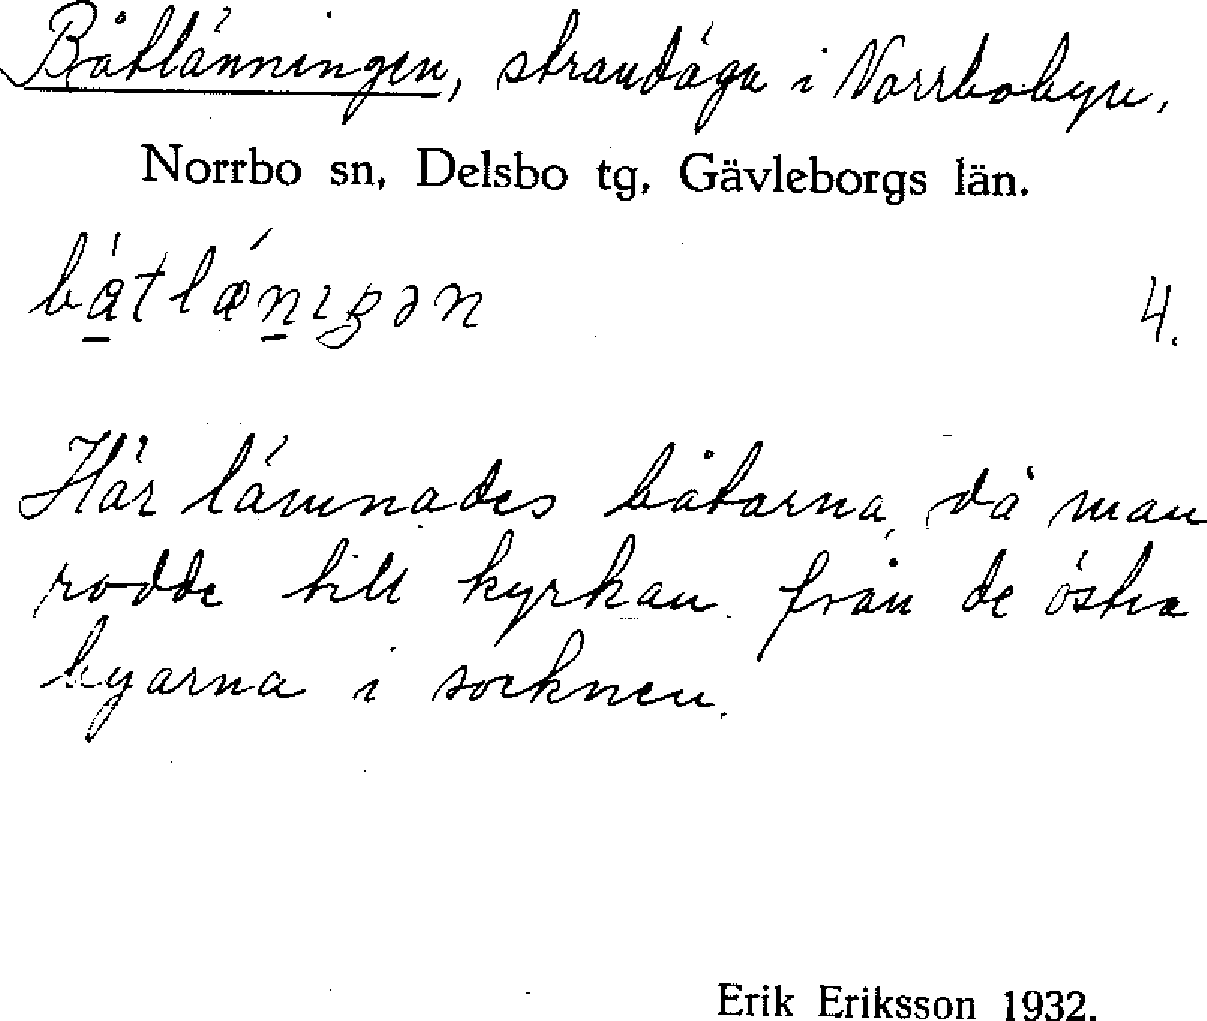 Båtlänningen, strandäga i Norrbobyn,
Norrbo sn, Delsbo tg, Gävleborgs län.
4.
Här lämnades båtarna, då man
rodde till kyrkan från de östra
byarna i socknen.
Erik Eriksson 1932.